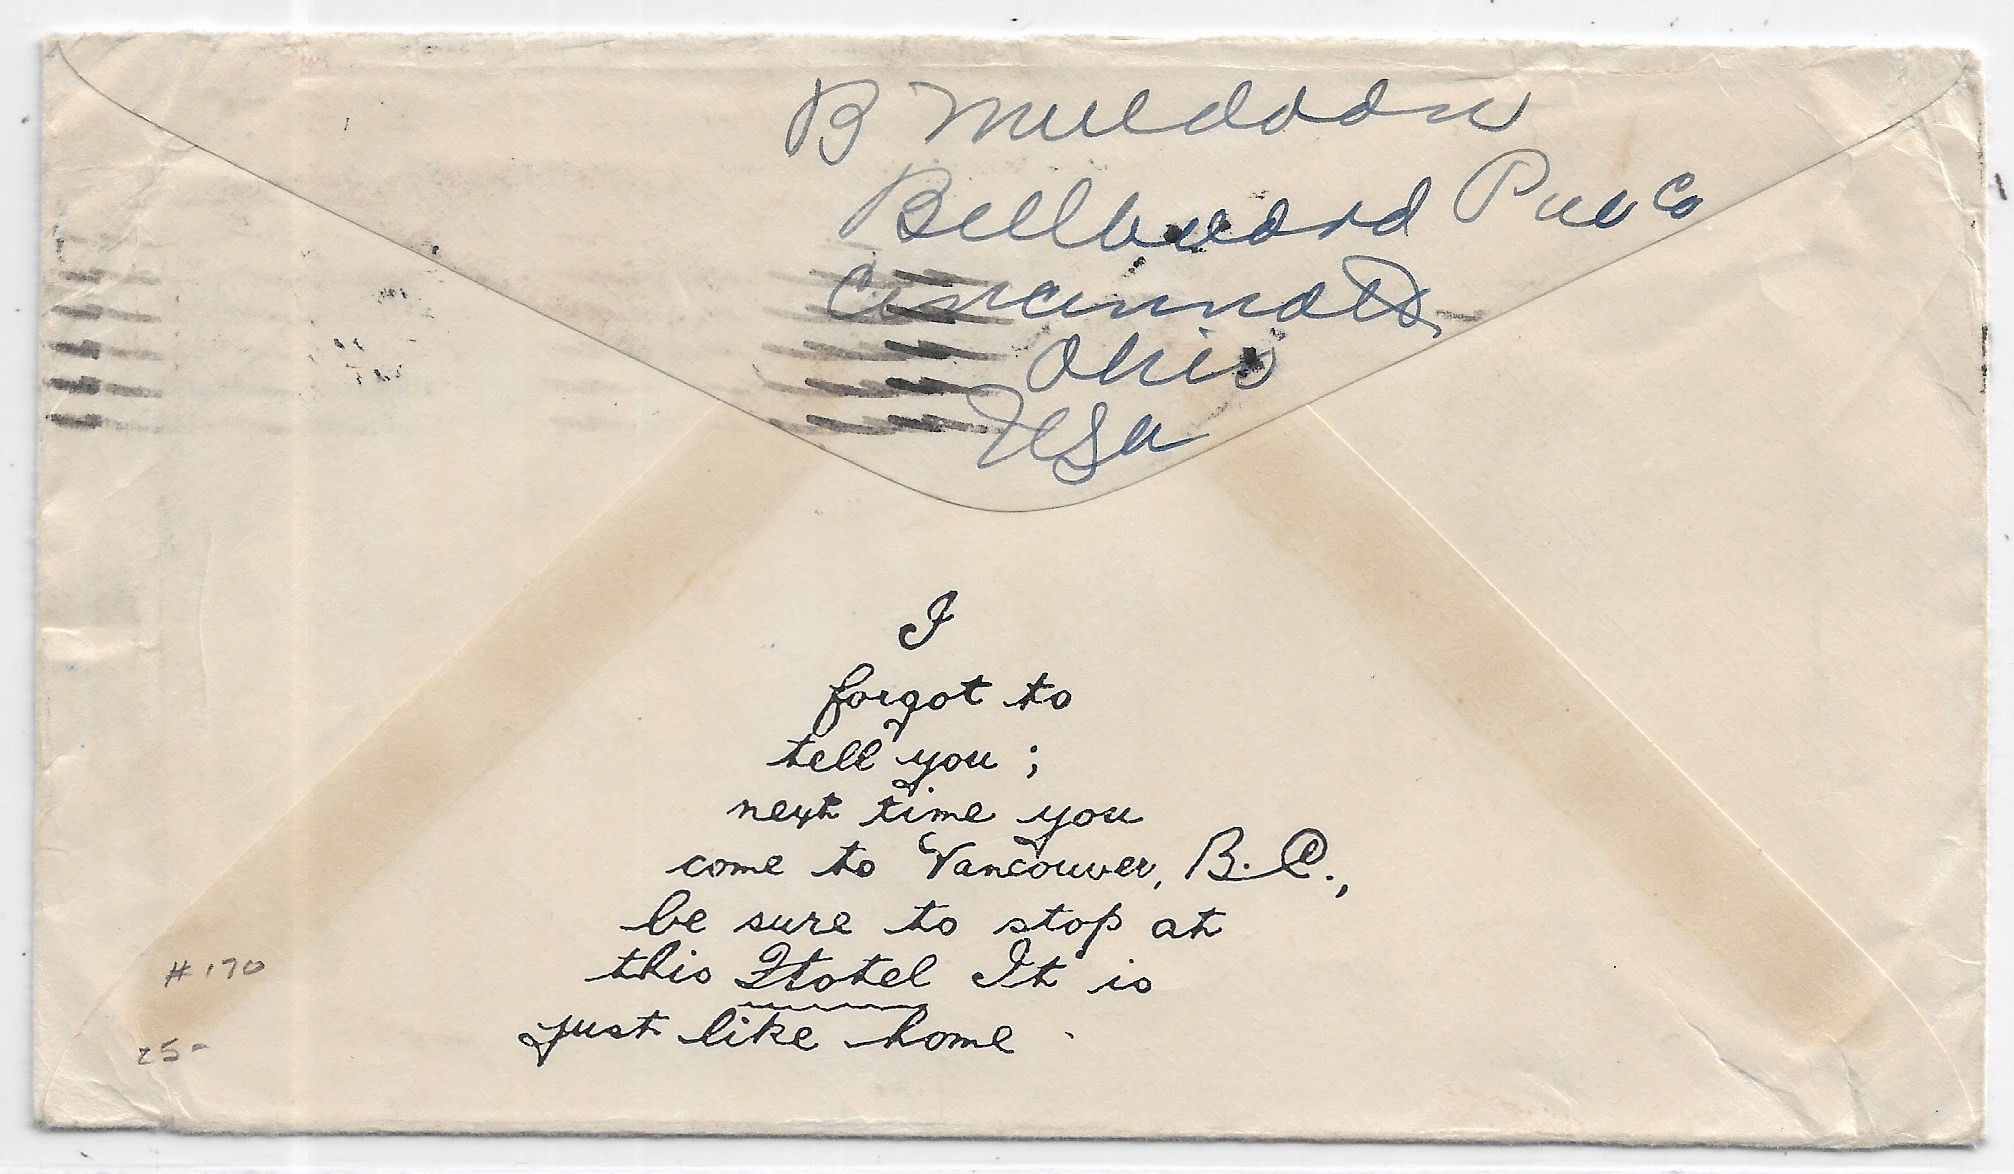 B Muldoon
Billboard Pub Co
Cincinnati
Ohio
USA
I
forgot to
tell you ;
next time you
come to Vancouver, B. C.,
be sure to stop at
this Hotel It is
just like home.
#170
25-